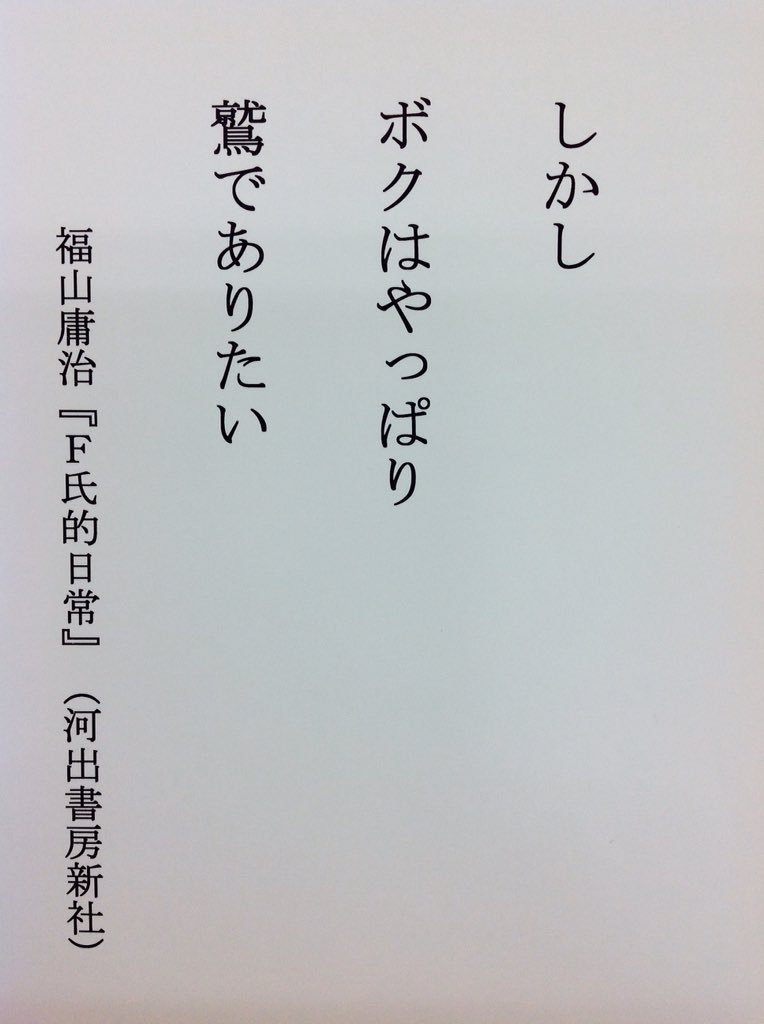 しかし
ボクはやっぱり
鷲でありたい
福山庸治『F氏的日常』（河出書房新社）